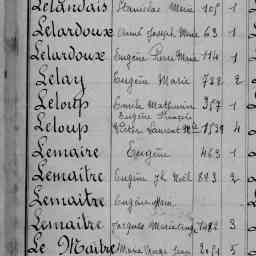 Lelandais Stanislas Marie 105 1
Lelardoux Aimé Joseph Marie 63 1
Lelardoux Eugène Pierre Marie 114 1
Lelay Eugène Marie 722 2
Leloup Emile Mathurin 357 1
Eugène François
Leloup Victor Laurent Mie 1529 4
Lemaire Eugène 463 1
Lemaître Eugène Jh Noël 823 2
Lemaître Eugène
Lemaître Jacques Marie 1482 3
Le Maître Marie Jean 5